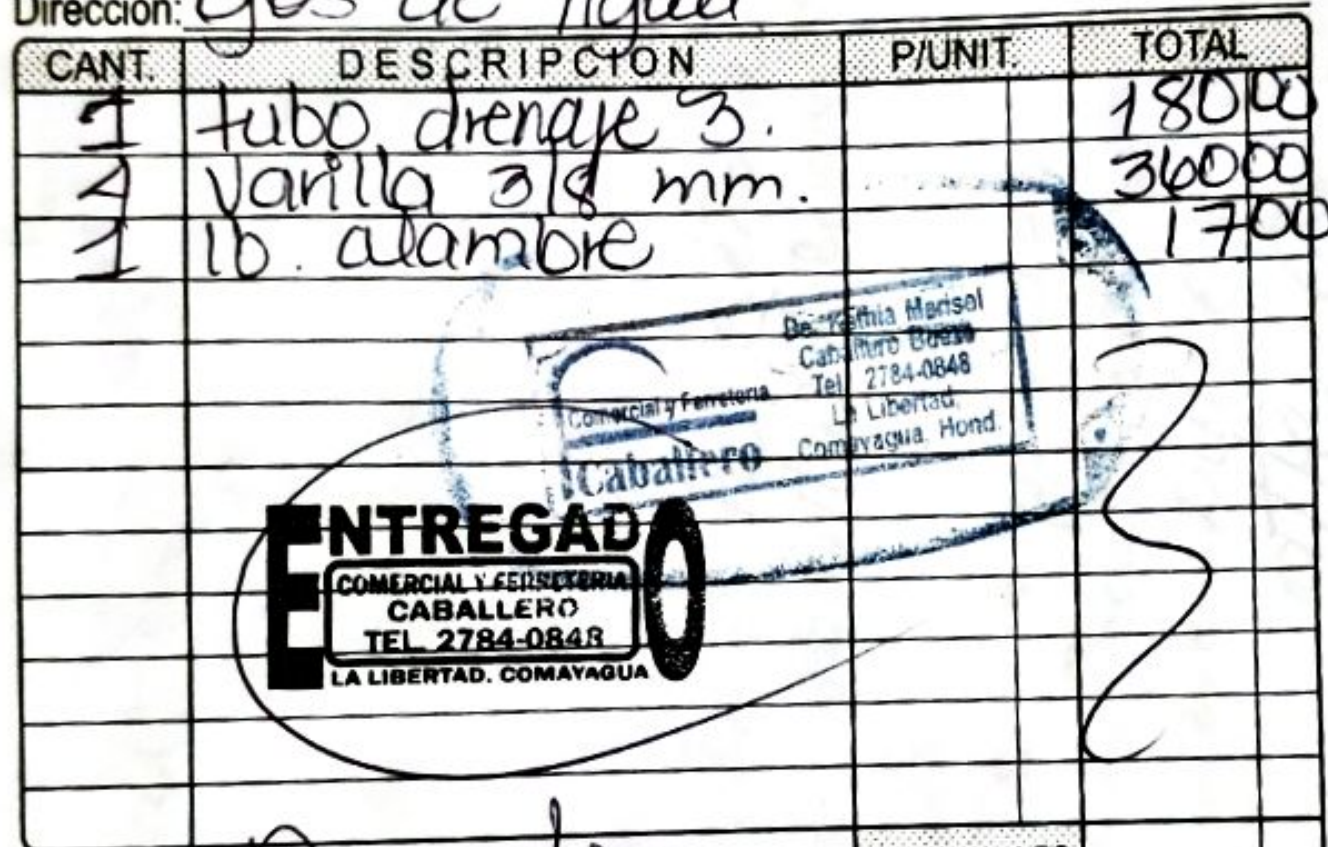 Dirección: Ojos de Agua
CANT. DESCRIPCION P/UNIT. TOTAL
1 tubo drenaje 3. 180 00
4 Varilla 3/8 mm. 360 00
1 lb. alambre 17 00
De: Kathia Marisol
Caballero Bueso
Tel. 2784-0848
La Libertad,
Comayagua. Hond.
Comercial y Ferreteria
Caballero
ENTREGADO
COMERCIAL Y FERRETERIA
CABALLERO
TEL. 2784-0848
LA LIBERTAD. COMAYAGUA